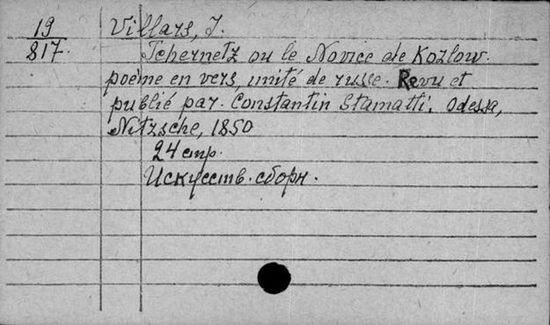 19
817.
Villars, J.
Tchernetz ou le Novice de Kozlow.
poeme en vers, unité de russe. Revu et
publié par Constantin Stamatti. Odessa,
Nitzsche, 1850
24 стр.
Искусств. сборн.